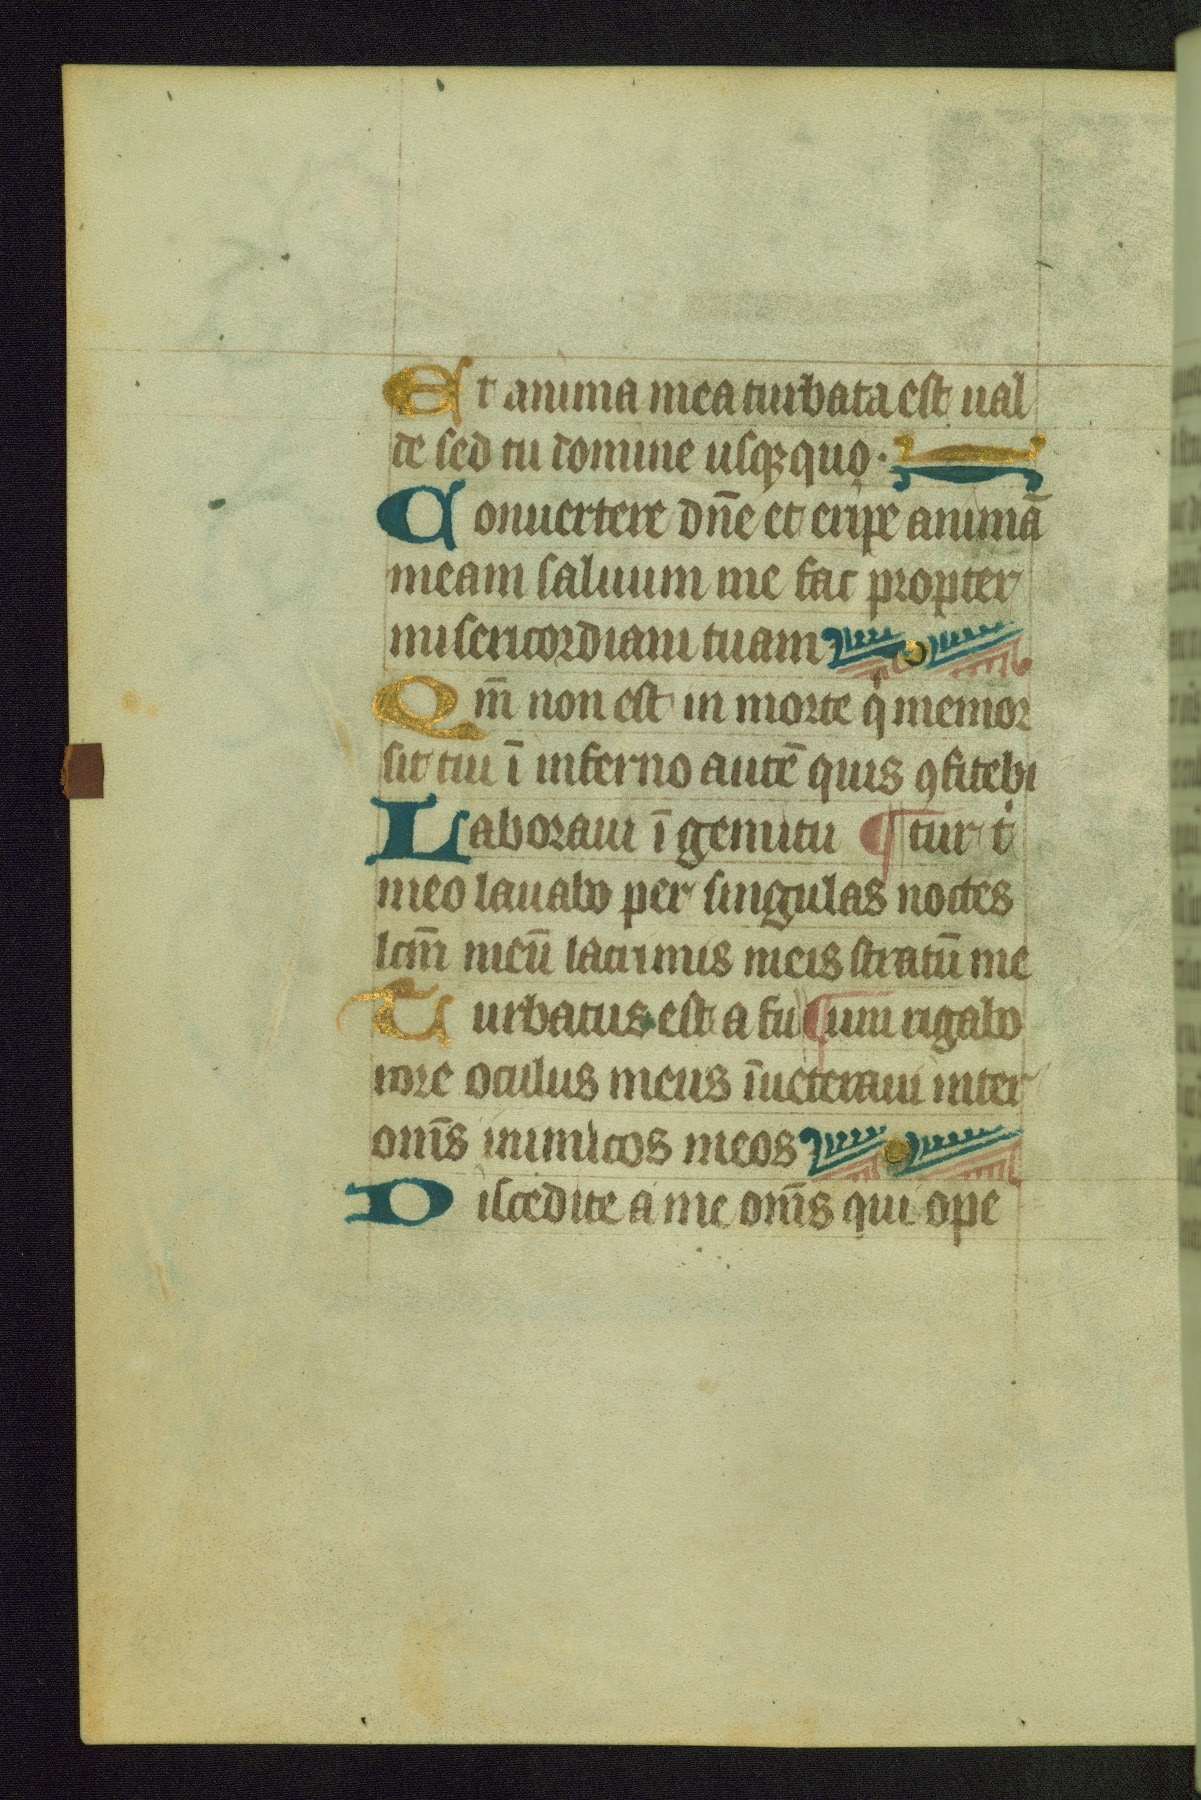 Et anima mea turbata est ual
de sed tu domine usqꝫ quo·
Conuertere dn̄e et eripe animā
meam saluum me fac propter
misericordiam tuam
Qm̄ non est in morte q̇ memor
sit tui ī inferno autē quis ꝯfitebi
Laboraui ī gemitu ¶ tur t̍
meo lauabo per singulas noctes
lcm̄ meū lacrimis meis stratū me
Turbatus est a fu ¶ um rigabo
rore oculus meus īueteraui inter
om̄s inimicos meos
Discedite a me om̄s qui ope